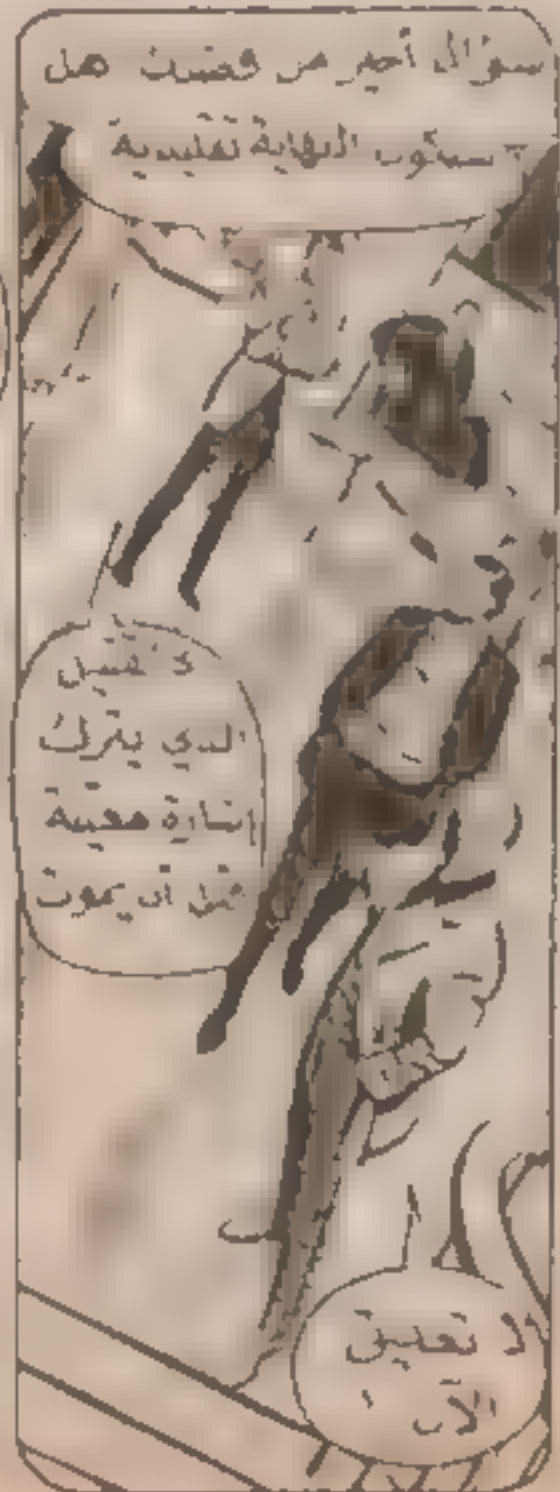 سؤال أخير من فضلك هل
ستكون النهاية تقليدية
الذي يترك
إشارة
قبل أن يموت
لا تعليق
الآن